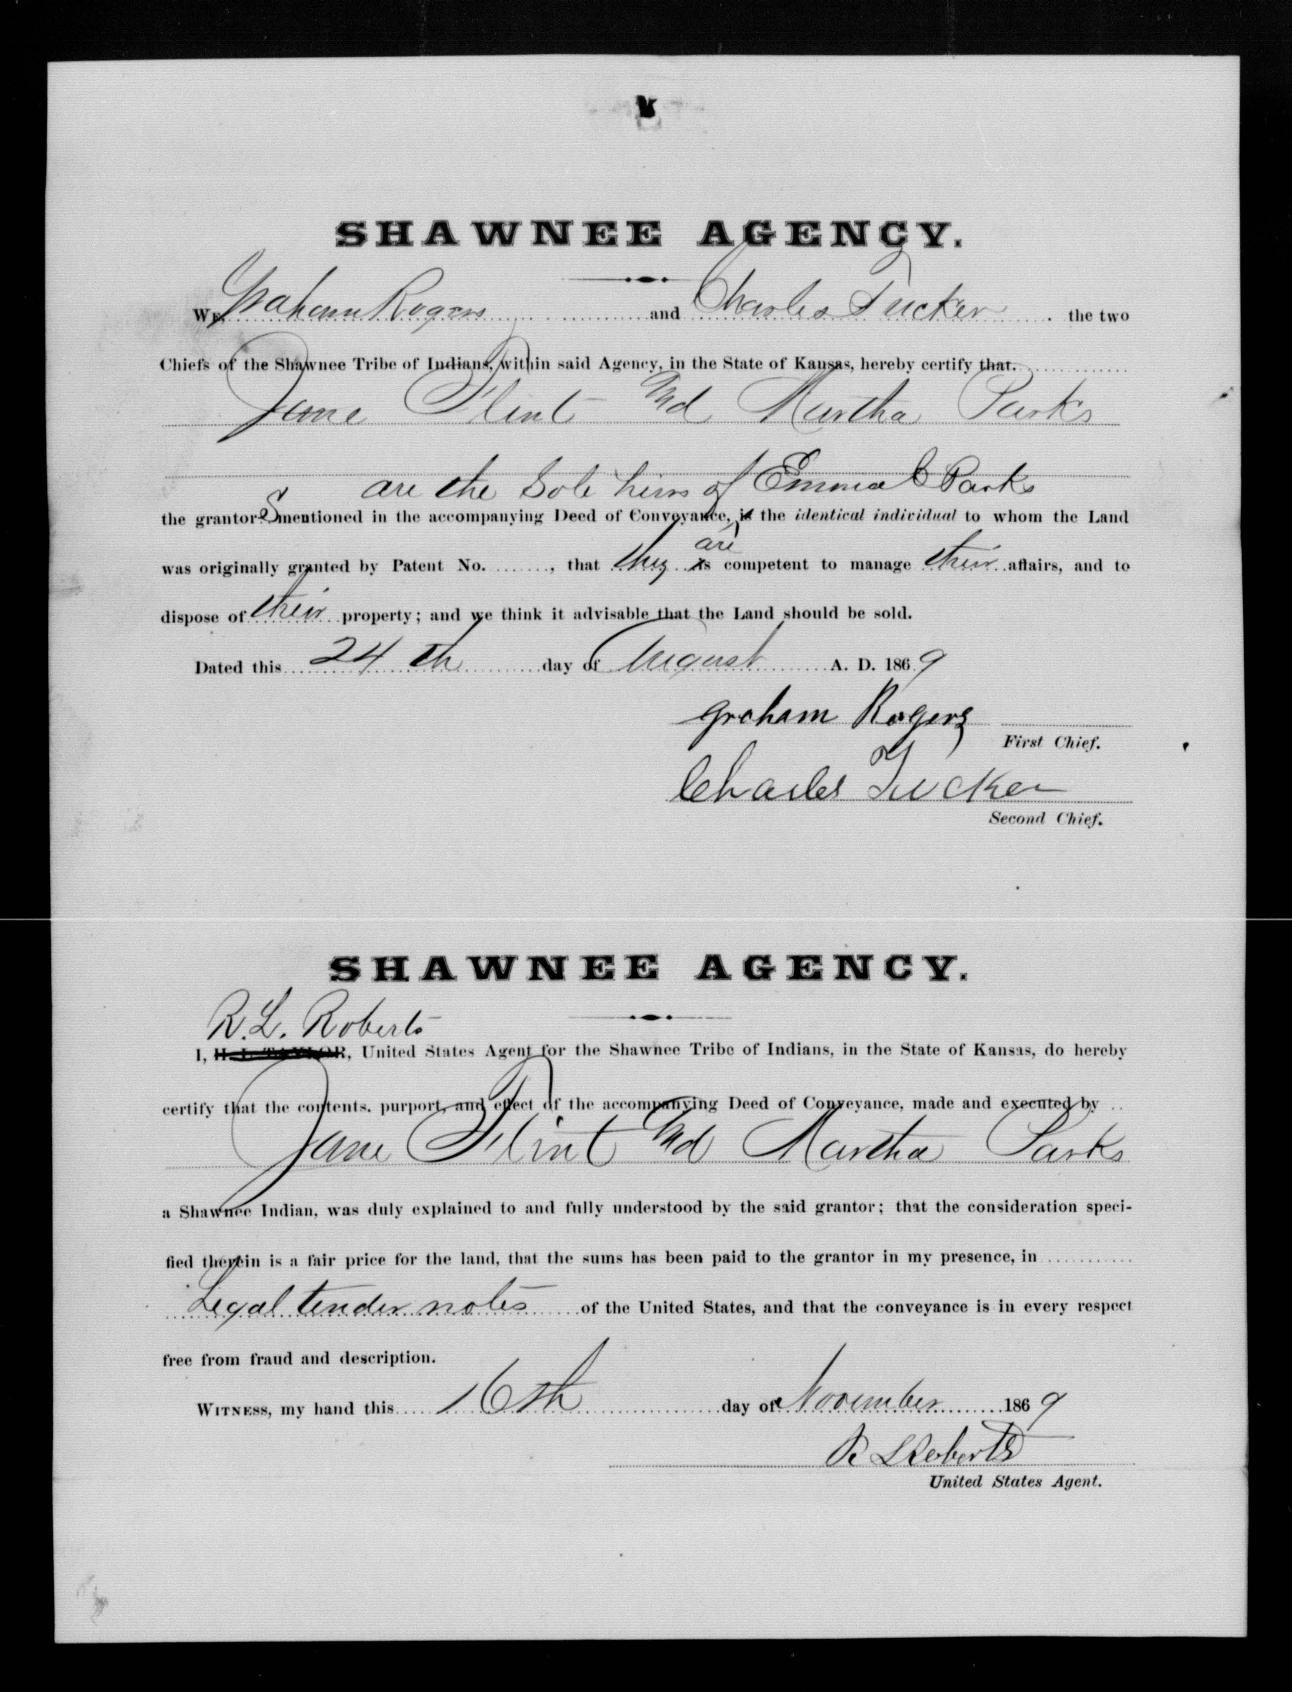 SHAWNEE AGENCY.
WE, Graham Rogers and Charles Tucker the two
Chiefs of the Shawnee Tribe of Indians, within said Agency, in the State of Kansas, hereby certify that
Jane Flint and Martha Parks
are the Sole heirs of Emma C Parks
the grantors mentioned in the accompanying Deed of Conveyance, is the identical individual to whom the Land
are
was originally granted by Patent No. ......., that they is competent to manage their affairs, and to
dispose of their property; and we think it advisable that the Land should be sold.
Dated this 24th day of August A. D. 1869
Graham Rogers
First Chief.
Charles Tucker
Second Chief.
SHAWNEE AGENCY.
R. L. Roberts
I, H. L. TAYLOR, United States Agent for the Shawnee Tribe of Indians, in the State of Kansas, do hereby
certify that the contents. purport, and effect of the accompanying Deed of Conveyance, made and executed by
Jane Flint and Martha Parks
a Shawnee Indian, was duly explained to and fully understood by the said grantor; that the consideration speci-
fied therein is a fair price for the land, that the sums has been paid to the grantor in my presence, in
Legal tender notes of the United States, and that the conveyance is in every respect
free from fraud and description.
WITNESS, my hand this 16th day of November 1869
R L Roberts
United States Agent.